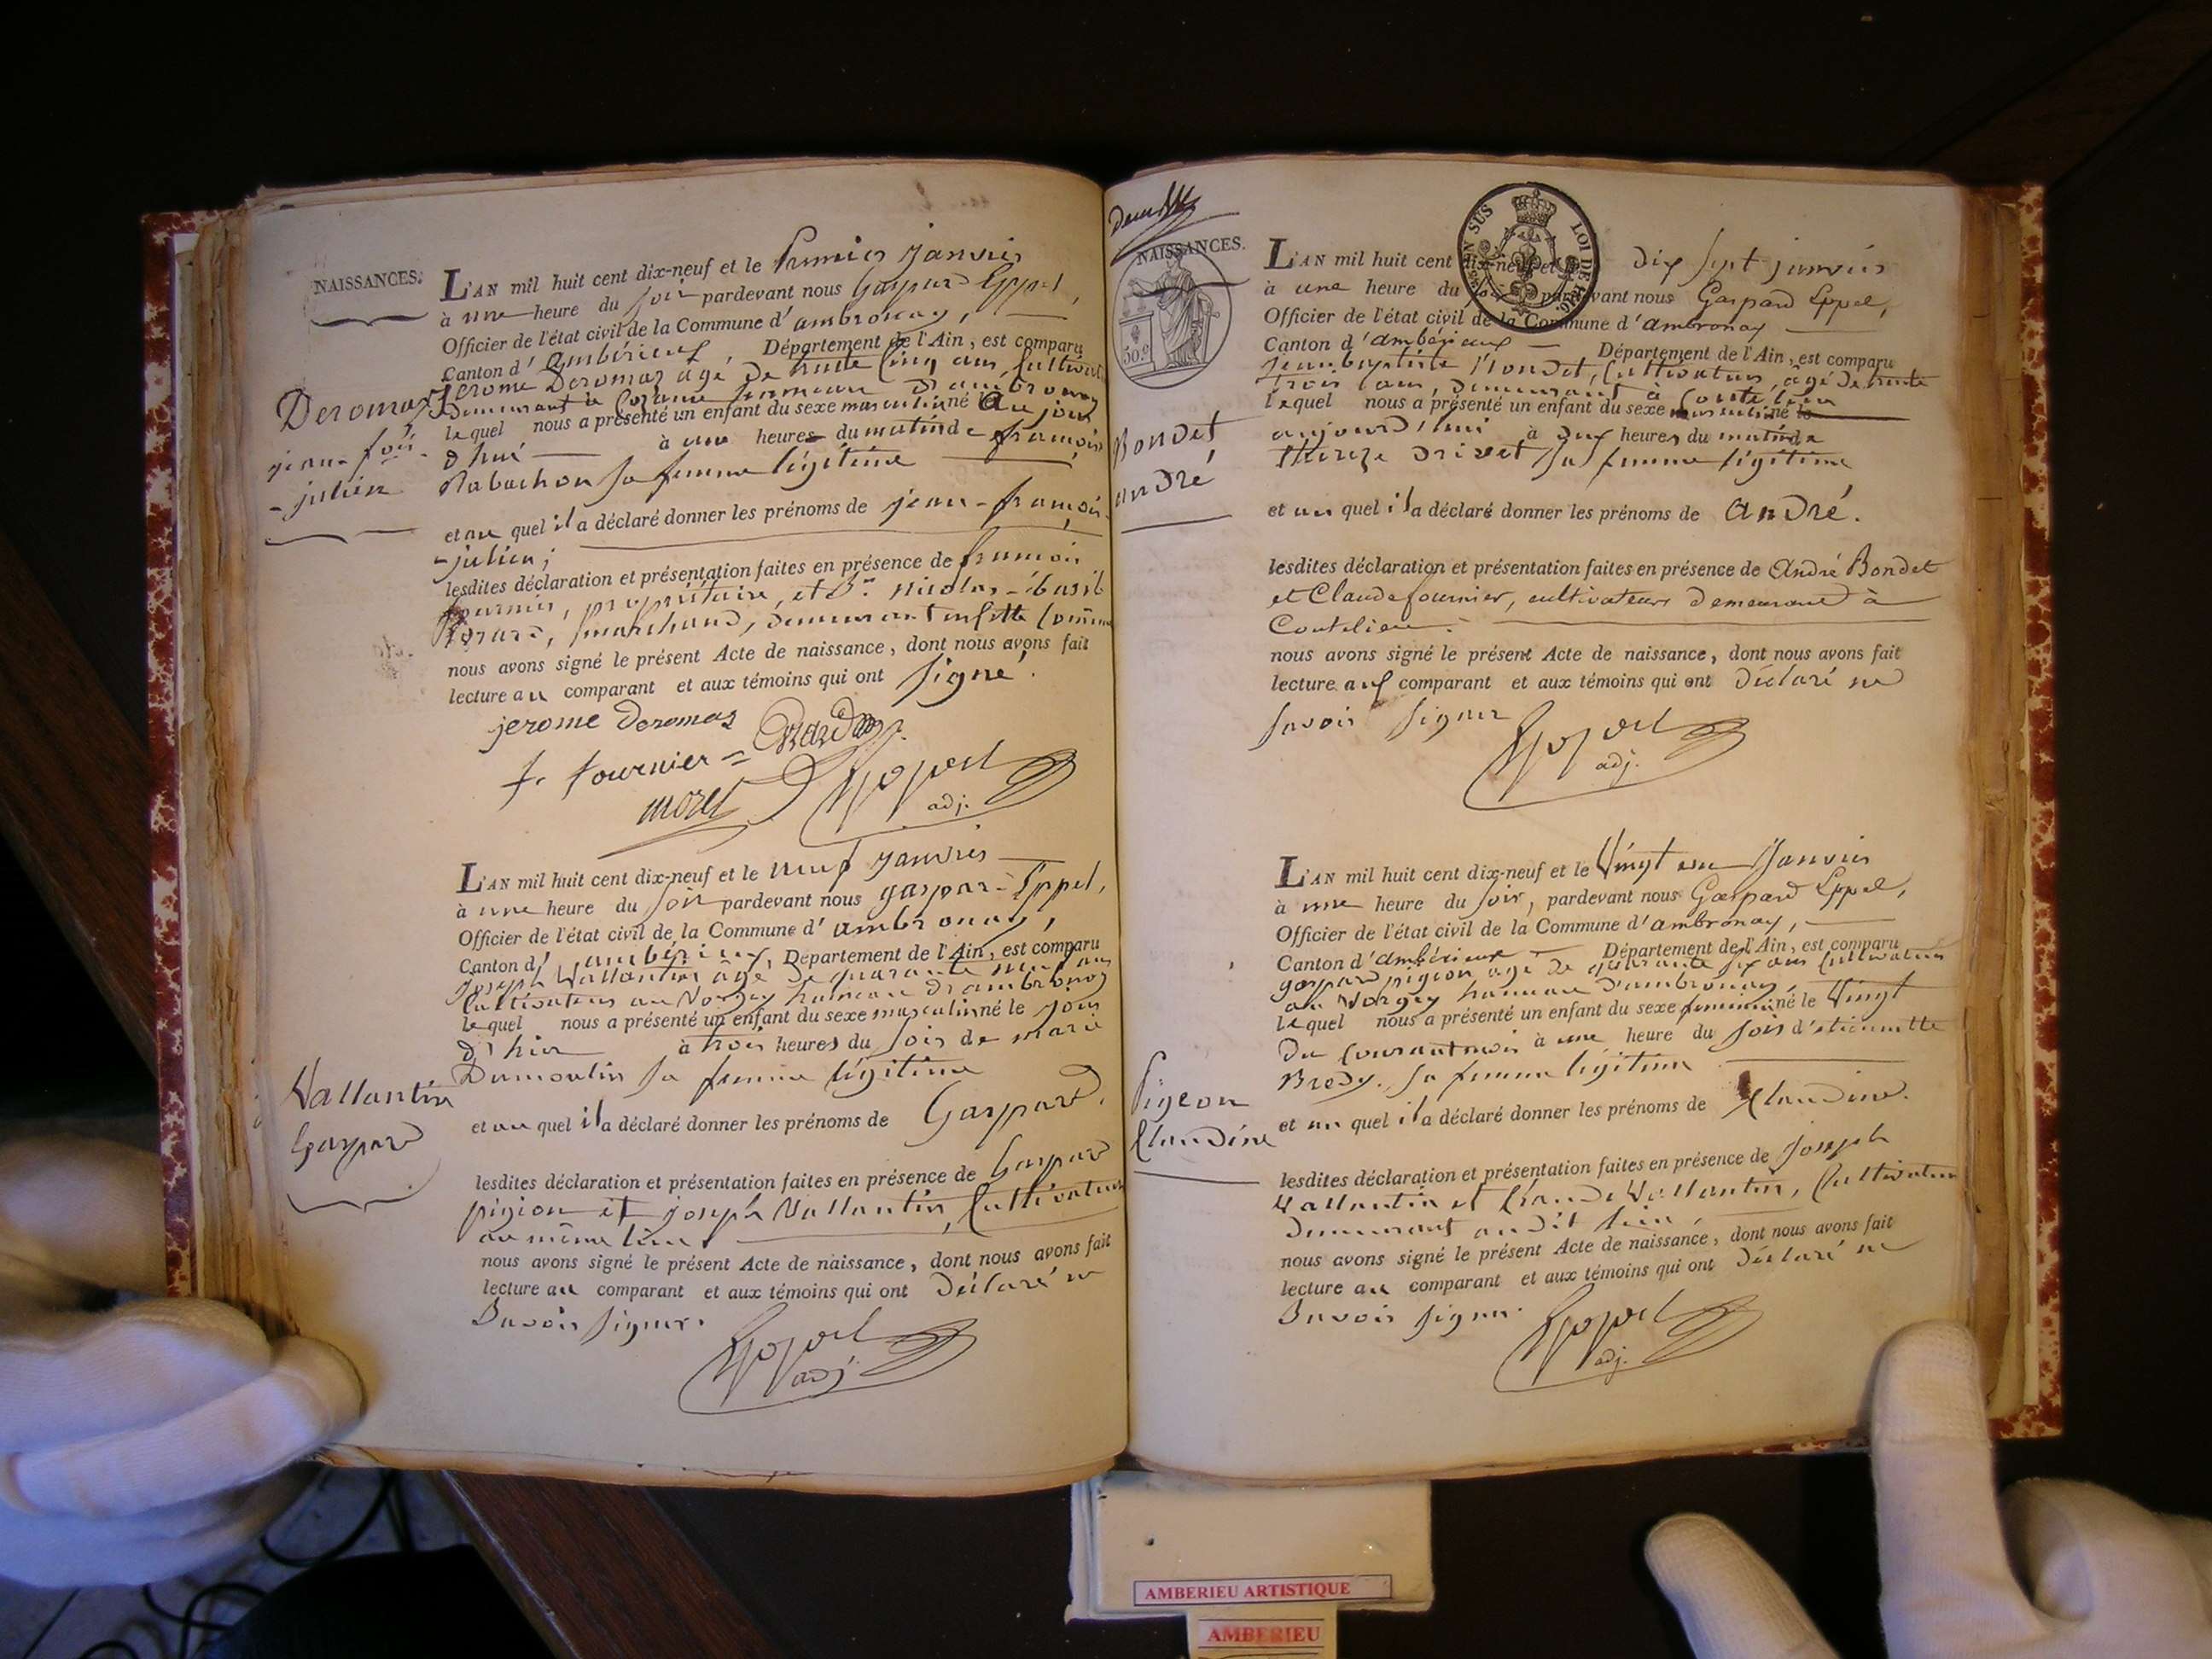 NAISSANCES.
L'AN mil huit cent dix-neuf et le premier janvier
à une heure du soir pardevant nous Gaspard Eppel,
Officier de l'état civil de la Commune d'ambronay,
Canton d'ambérieux, Département de l'Ain, est comparu
jerome Deromas agé de trente cinq ans, Cultivateur
demeurant à hameau d'ambronay
lequel nous a présenté un enfant du sexe masculin né aujour
d'hui à une heure du matin de françoise
Rabachon sa femme légitime
et au quel il a déclaré donner les prénoms de jean-françois
-julien;
lesdites déclaration et présentation faites en présence de françois
fournier, propriétaire, et Sr. nicolas-basil
marchand, demeurant en cette Commune
nous avons signé le présent Acte de naissance, dont nous avons fait
lecture au comparant et aux témoins qui ont signé.
Deromas
jean-fois-
-julien
jerome deromas
f. fournier
morel
Eppel
adj.
L'AN mil huit cent dix-neuf et le neuf janvier
à une heure du soir pardevant nous gaspard Eppel,
Officier de l'état civil de la Commune d'ambronay,
Canton d'ambérieux, Département de l'Ain, est comparu
joseph Vallantin âgé de quarante neuf ans
Cultivateur au Vorgey hameau d'ambronay
lequel nous a présenté un enfant du sexe masculin né le jour
d'hier à trois heures du soir de marie
Dumoulin sa femme légitime
et au quel il a déclaré donner les prénoms de Gaspard.
lesdites déclaration et présentation faites en présence de Gaspard
pigeon et joseph Vallantin, Cultivateurs
au même lieu.
nous avons signé le présent Acte de naissance, dont nous avons fait
lecture au comparant et aux témoins qui ont déclaré ne
Savoir signer.
Vallantin
Gaspard
Eppel
adj.
NAISSANCES.
50 c
EN SUS
LOI DE 1816.
L'AN mil huit cent dix-neuf et le dix sept janvier
à une heure du soir pardevant nous Gaspard Eppel,
Officier de l'état civil de la Commune d'ambronay
Canton d'ambérieux Département de l'Ain, est comparu
jean baptiste Bondet, Cultivateur, âgé de trente
trois ans, demeurant à Coutelieu
lequel nous a présenté un enfant du sexe masculin né le
aujourd'hui à deux heures du matin de
Thereze Drivet sa femme légitime
et au quel il a déclaré donner les prénoms de André.
lesdites déclaration et présentation faites en présence de André Bondet
et Claude fournier, cultivateurs demeurant à
Coutelieu.
nous avons signé le présent Acte de naissance, dont nous avons fait
lecture aux comparant et aux témoins qui ont déclaré ne
savoir signer
Bondet
andré
Eppel
adj.
L'AN mil huit cent dix-neuf et le Vingt un Janvier
à une heure du soir, pardevant nous Gaspard Eppel,
Officier de l'état civil de la Commune d'ambronay,
Canton d'ambérieux Département de l'Ain, est comparu
gaspard pigeon agé de quarante six ans Cultivateur
au Vorgey hameau d'ambronay,
lequel nous a présenté un enfant du sexe feminin né le Vingt
du Courant mois à une heure du soir d'etiennette
Bredy. sa femme légitime
et au quel il a déclaré donner les prénoms de Claudine.
lesdites déclaration et présentation faites en présence de Joseph
Vallantin et Claude Vallantin, Cultivateurs
demeurant audit lieu,
nous avons signé le présent Acte de naissance, dont nous avons fait
lecture au comparant et aux témoins qui ont déclaré ne
Savoir signer.
Pigeon
Claudine
Eppel
adj.
AMBERIEU ARTISTIQUE
AMBERIEU